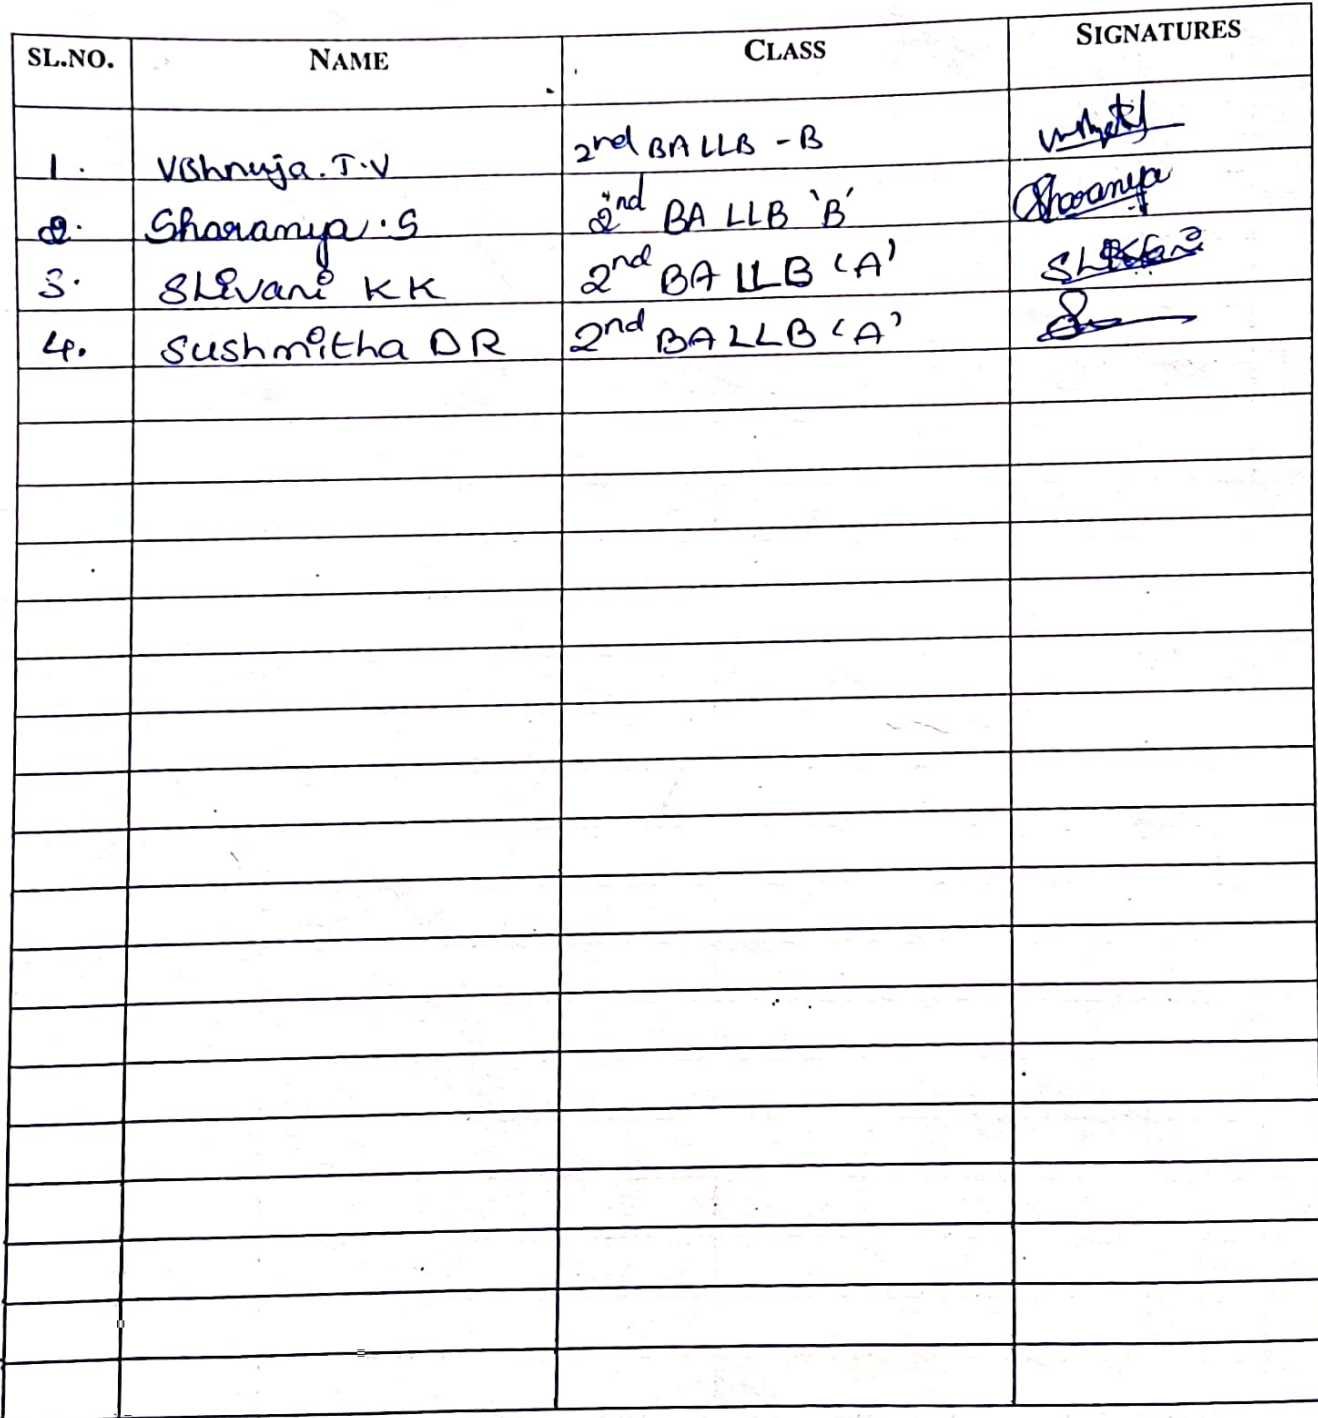 SL.NO. NAME CLASS SIGNATURES
1. Vishnuja.T.V 2nd BA LLB - B
2. Sharanya.S 2nd BA LLB 'B' Sharanya
3. Shivani KK 2nd BA LLB 'A' Shivani
4. Sushmitha DR 2nd BA LLB 'A'